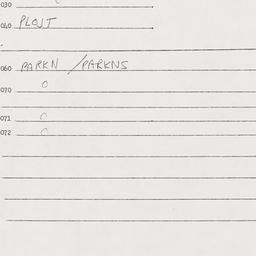 030
040 PLOJT
060 PARKN / PARKNS
070 O
071 O
072 O